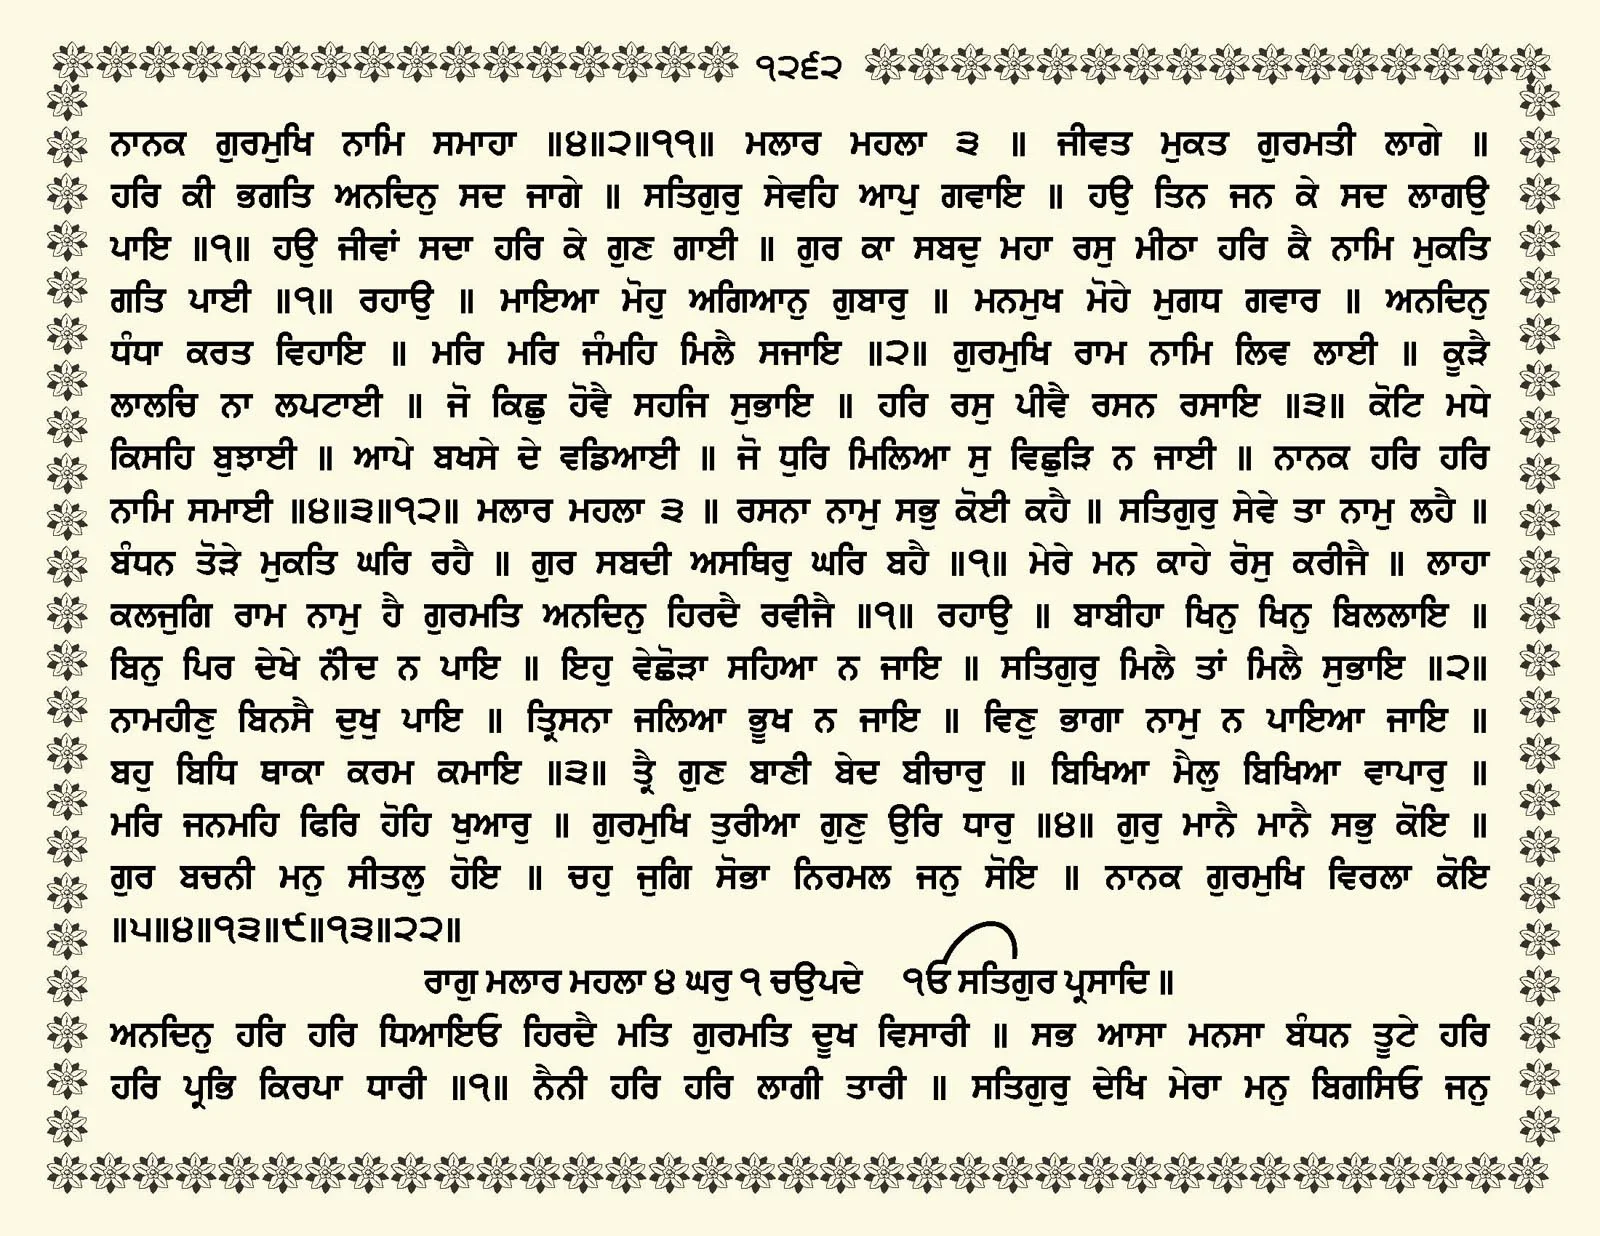 ੧੨੬੨
ਨਾਨਕ ਗੁਰਮੁਖਿ ਨਾਮਿ ਸਮਾਹਾ ॥੪॥੨॥੧੧॥ ਮਲਾਰ ਮਹਲਾ ੩ ॥ ਜੀਵਤ ਮੁਕਤ ਗੁਰਮਤੀ ਲਾਗੇ ॥
ਹਰਿ ਕੀ ਭਗਤਿ ਅਨਦਿਨੁ ਸਦ ਜਾਗੇ ॥ ਸਤਿਗੁਰੁ ਸੇਵਹਿ ਆਪੁ ਗਵਾਇ ॥ ਹਉ ਤਿਨ ਜਨ ਕੇ ਸਦ ਲਾਗਉ
ਪਾਇ ॥੧॥ ਹਉ ਜੀਵਾਂ ਸਦਾ ਹਰਿ ਕੇ ਗੁਣ ਗਾਈ ॥ ਗੁਰ ਕਾ ਸਬਦੁ ਮਹਾ ਰਸੁ ਮੀਠਾ ਹਰਿ ਕੈ ਨਾਮਿ ਮੁਕਤਿ
ਗਤਿ ਪਾਈ ॥੧॥ ਰਹਾਉ ॥ ਮਾਇਆ ਮੋਹੁ ਅਗਿਆਨੁ ਗੁਬਾਰੁ ॥ ਮਨਮੁਖ ਮੋਹੇ ਮੁਗਧ ਗਵਾਰ ॥ ਅਨਦਿਨੁ
ਧੰਧਾ ਕਰਤ ਵਿਹਾਇ ॥ ਮਰਿ ਮਰਿ ਜੰਮਹਿ ਮਿਲੈ ਸਜਾਇ ॥੨॥ ਗੁਰਮੁਖਿ ਰਾਮ ਨਾਮਿ ਲਿਵ ਲਾਈ ॥ ਕੂੜੈ
ਲਾਲਚਿ ਨਾ ਲਪਟਾਈ ॥ ਜੋ ਕਿਛੁ ਹੋਵੈ ਸਹਜਿ ਸੁਭਾਇ ॥ ਹਰਿ ਰਸੁ ਪੀਵੈ ਰਸਨ ਰਸਾਇ ॥੩॥ ਕੋਟਿ ਮਧੇ
ਕਿਸਹਿ ਬੁਝਾਈ ॥ ਆਪੇ ਬਖਸੇ ਦੇ ਵਡਿਆਈ ॥ ਜੋ ਧੁਰਿ ਮਿਲਿਆ ਸੁ ਵਿਛੁੜਿ ਨ ਜਾਈ ॥ ਨਾਨਕ ਹਰਿ ਹਰਿ
ਨਾਮਿ ਸਮਾਈ ॥੪॥੩॥੧੨॥ ਮਲਾਰ ਮਹਲਾ ੩ ॥ ਰਸਨਾ ਨਾਮੁ ਸਭੁ ਕੋਈ ਕਹੈ ॥ ਸਤਿਗੁਰੁ ਸੇਵੇ ਤਾ ਨਾਮੁ ਲਹੈ ॥
ਬੰਧਨ ਤੋੜੇ ਮੁਕਤਿ ਘਰਿ ਰਹੈ ॥ ਗੁਰ ਸਬਦੀ ਅਸਥਿਰੁ ਘਰਿ ਬਹੈ ॥੧॥ ਮੇਰੇ ਮਨ ਕਾਹੇ ਰੋਸੁ ਕਰੀਜੈ ॥ ਲਾਹਾ
ਕਲਜੁਗਿ ਰਾਮ ਨਾਮੁ ਹੈ ਗੁਰਮਤਿ ਅਨਦਿਨੁ ਹਿਰਦੈ ਰਵੀਜੈ ॥੧॥ ਰਹਾਉ ॥ ਬਾਬੀਹਾ ਖਿਨੁ ਖਿਨੁ ਬਿਲਲਾਇ ॥
ਬਿਨੁ ਪਿਰ ਦੇਖੇ ਨੀਂਦ ਨ ਪਾਇ ॥ ਇਹੁ ਵੇਛੋੜਾ ਸਹਿਆ ਨ ਜਾਇ ॥ ਸਤਿਗੁਰੁ ਮਿਲੈ ਤਾਂ ਮਿਲੈ ਸੁਭਾਇ ॥੨॥
ਨਾਮਹੀਣੁ ਬਿਨਸੈ ਦੁਖੁ ਪਾਇ ॥ ਤ੍ਰਿਸਨਾ ਜਲਿਆ ਭੂਖ ਨ ਜਾਇ ॥ ਵਿਣੁ ਭਾਗਾ ਨਾਮੁ ਨ ਪਾਇਆ ਜਾਇ ॥
ਬਹੁ ਬਿਧਿ ਥਾਕਾ ਕਰਮ ਕਮਾਇ ॥੩॥ ਤ੍ਰੈ ਗੁਣ ਬਾਣੀ ਬੇਦ ਬੀਚਾਰੁ ॥ ਬਿਖਿਆ ਮੈਲੁ ਬਿਖਿਆ ਵਾਪਾਰੁ ॥
ਮਰਿ ਜਨਮਹਿ ਫਿਰਿ ਹੋਹਿ ਖੁਆਰੁ ॥ ਗੁਰਮੁਖਿ ਤੁਰੀਆ ਗੁਣੁ ਉਰਿ ਧਾਰੁ ॥੪॥ ਗੁਰੁ ਮਾਨੈ ਮਾਨੈ ਸਭੁ ਕੋਇ ॥
ਗੁਰ ਬਚਨੀ ਮਨੁ ਸੀਤਲੁ ਹੋਇ ॥ ਚਹੁ ਜੁਗਿ ਸੋਭਾ ਨਿਰਮਲ ਜਨੁ ਸੋਇ ॥ ਨਾਨਕ ਗੁਰਮੁਖਿ ਵਿਰਲਾ ਕੋਇ
॥੫॥੪॥੧੩॥੯॥੧੩॥੨੨॥
ਰਾਗੁ ਮਲਾਰ ਮਹਲਾ ੪ ਘਰੁ ੧ ਚਉਪਦੇ ੴ ਸਤਿਗੁਰ ਪ੍ਰਸਾਦਿ ॥
ਅਨਦਿਨੁ ਹਰਿ ਹਰਿ ਧਿਆਇਓ ਹਿਰਦੈ ਮਤਿ ਗੁਰਮਤਿ ਦੂਖ ਵਿਸਾਰੀ ॥ ਸਭ ਆਸਾ ਮਨਸਾ ਬੰਧਨ ਤੂਟੇ ਹਰਿ
ਹਰਿ ਪ੍ਰਭਿ ਕਿਰਪਾ ਧਾਰੀ ॥੧॥ ਨੈਨੀ ਹਰਿ ਹਰਿ ਲਾਗੀ ਤਾਰੀ ॥ ਸਤਿਗੁਰੁ ਦੇਖਿ ਮੇਰਾ ਮਨੁ ਬਿਗਸਿਓ ਜਨੁ